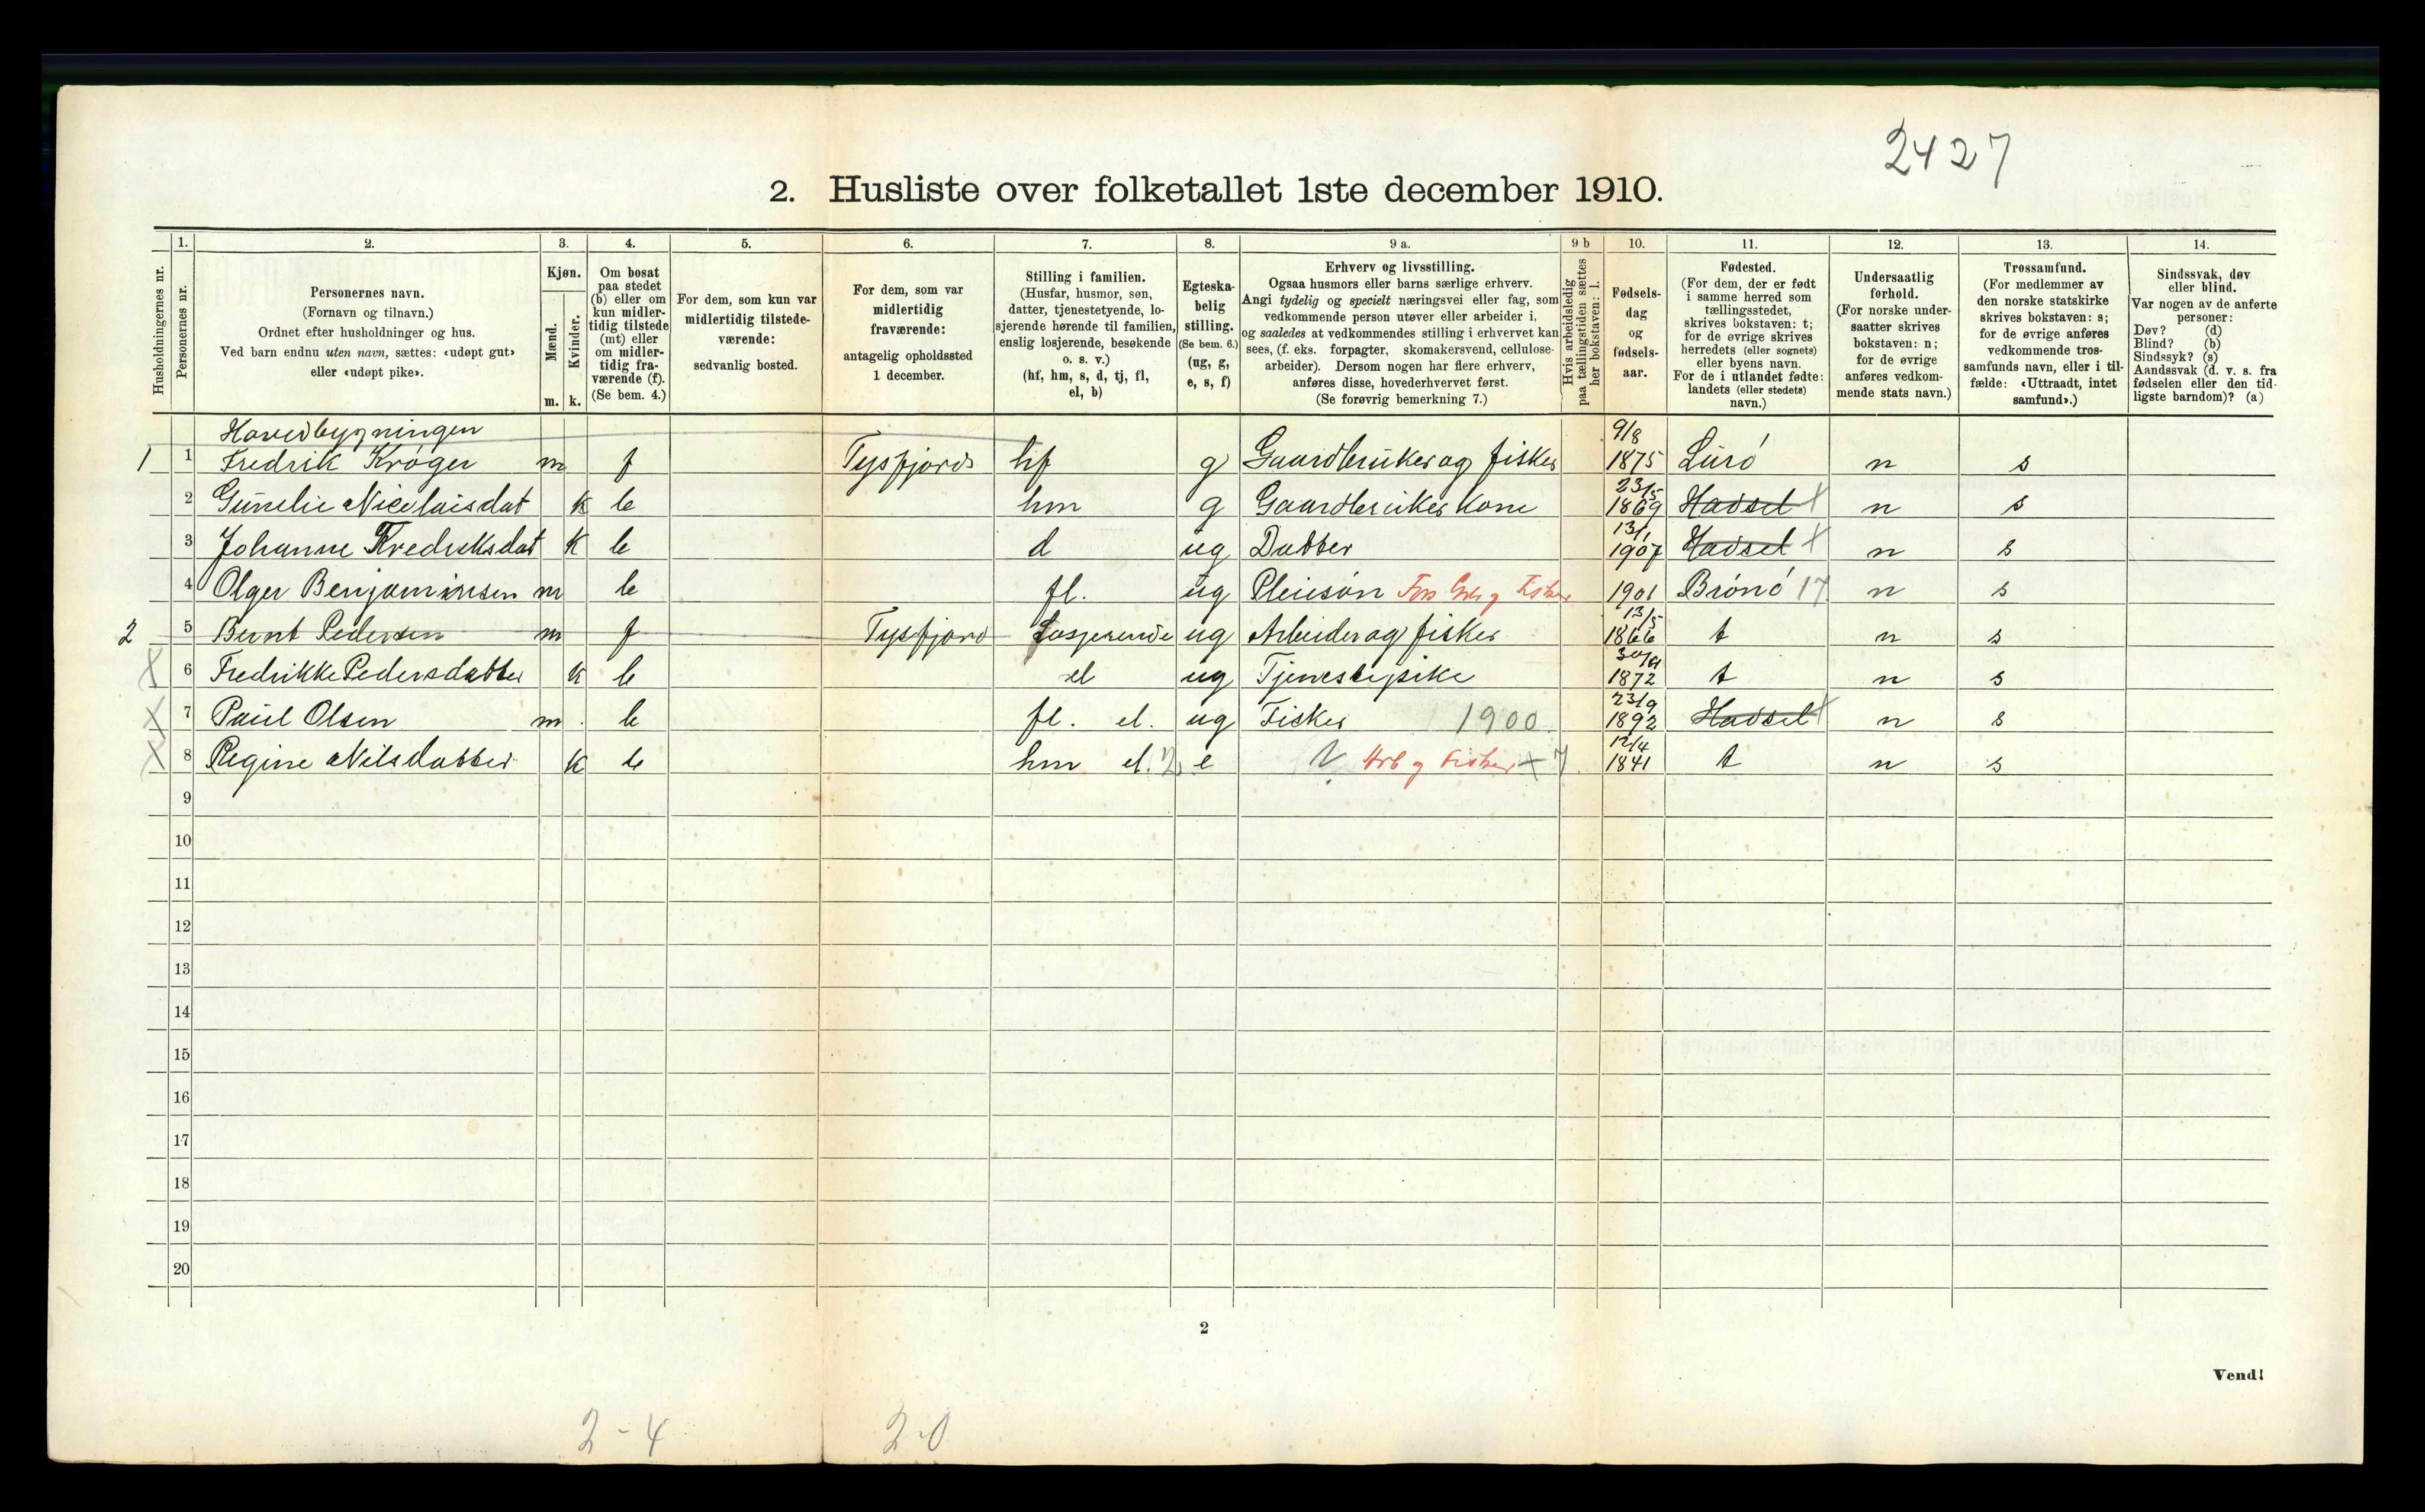 2427
2. Husliste over folketallet 1ste december 1910.
Husholdningernes nr.
1.
Personernes nr.
2.
Personernes navn.
(Fornavn og tilnavn.)
Ordnet efter husholdninger og hus.
Ved barn endnu uten navn, sættes: «udøpt gut»
eller «udøpt pike».
3.
Kjøn.
Mænd.
Kvinder.
m. k.
4.
Om bosat
paa stedet
(b) eller om
kun midler-
tidig tilstede
(mt) eller
om midler-
tidig fra-
værende (f).
(Se bem. 4.)
5.
For dem, som kun var
midlertidig tilstede-
værende:
sedvanlig bosted.
6.
For dem, som var
midlertidig
fraværende:
antagelig opholdssted
1 december.
7.
Stilling i familien.
(Husfar, husmor, søn,
datter, tjenestetyende, lo-
sjerende hørende til familien,
enslig losjerende, besøkende
o. s. v.)
(hf, hm, s, d, tj, fl,
el, b)
8.
Egteska-
belig
stilling.
(Se bem. 6.)
(ug, g,
e, s, f)
9 a.
Erhverv og livsstilling.
Ogsaa husmors eller barns særlige erhverv.
Angi tydelig og specielt næringsvei eller fag, som
vedkommende person utøver eller arbeider i,
og saaledes at vedkommendes stilling i erhvervet kan
sees, (f. eks. forpagter, skomakersvend, cellulose-
arbeider). Dersom nogen har flere erhverv,
anføres disse, hovederhvervet først.
(Se forøvrig bemerkning 7.)
9 b
Hvis arbeidsledig
paa tællingstiden sættes
her bokstaven: l.
10.
Fødsels-
dag
og
fødsels-
aar.
11.
Fødested.
(For dem, der er født
i samme herred som
tællingsstedet,
skrives bokstaven: t;
for de øvrige skrives
herredets (eller sognets)
eller byens navn.
For de i utlandet fødte:
landets (eller stedets)
navn.)
12.
Undersaatlig
forhold.
(For norske under-
saatter skrives
bokstaven: n;
for de øvrige
anføres vedkom-
mende stats navn.)
13.
Trossamfund.
(For medlemmer av
den norske statskirke
skrives bokstaven: s;
for de øvrige anføres
vedkommende tros-
samfunds navn, eller i til-
fælde: «Uttraadt, intet
samfund».)
14.
Sindssvak, døv
eller blind.
Var nogen av de anførte
personer:
Døv? (d)
Blind? (b)
Sindssyk? (s)
Aandssvak (d. v. s. fra
fødselen eller den tid-
ligste barndom)? (a)
Hovedbygningen
1 1 Fredrik Krøger m f Tysfjord hf g Gaardbruker og fisker 9/8 1875 Lurø n s
2 Gunelie Nicolaisdat k b hm g Gaardbruker kone 23/5 1869 Hadsel n s
3 Johanne Fredriksdat k b d ug Datter 13/1 1907 Hadsel n s
4 Olger Benjaminsen m b fl. ug Pleiesøn 1901 Brønø 17 n s
2 5 Bernt Pedersen m f Tysfjord Losjerende ug Arbeider og fisker 13/5 1866 t n s
X 6 Fredrikke Pedersdatter k b el ug Tjenestepike 1872 t n s
X 7 Paul Olsen m b fl. el. ug Fisker 1900 23/9 1892 Hadsel n s
X 8 Regine Nilsdatter k b hm el. e Arb og Fisker 12/4 1841 t n s
9
10
11
12
13
14
15
16
17
18
19
20
2
Vend!
2-4
2-0